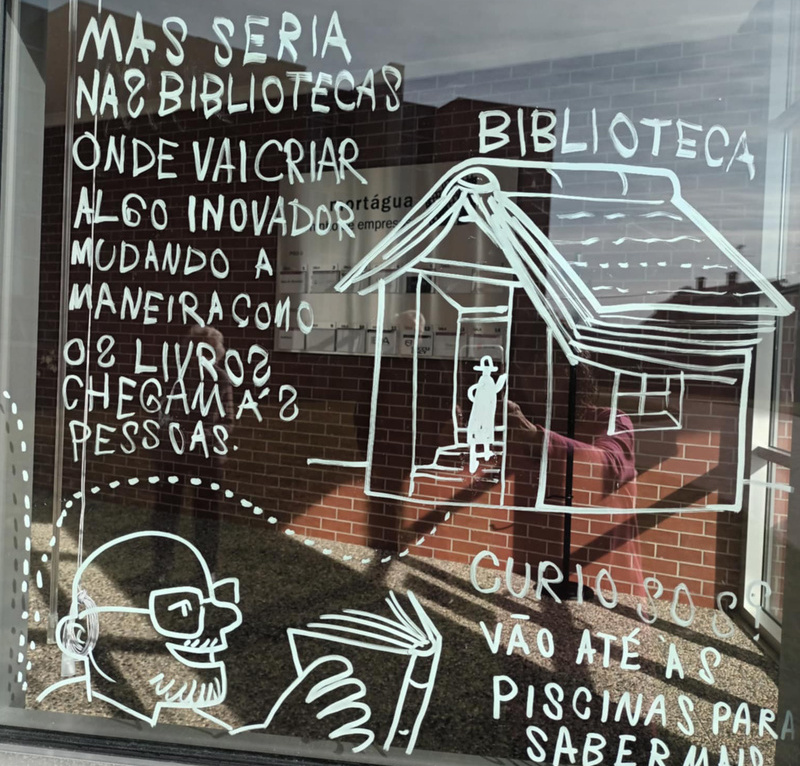 MAS SERIA
NAS BIBLIOTECAS
ONDE VAI CRIAR
ALGO INOVADOR
MUDANDO A
MANEIRA COMO
OS LIVROS
CHEGAM ÀS
PESSOAS.
BIBLIOTECA
mortágua
CURIOSOS?
VÃO ATÉ ÀS
PISCINAS PARA
SABER MAIS